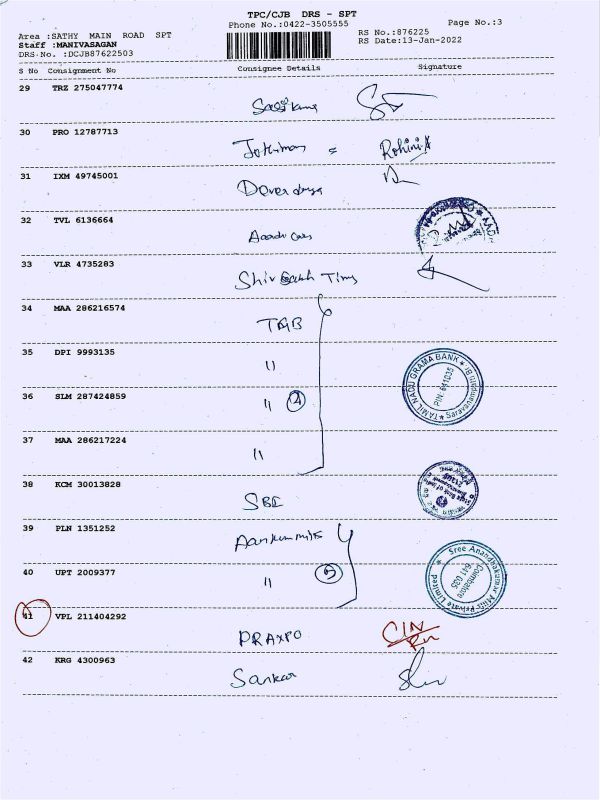 TPC/CJB DRS - SPT
Phone No.:0422-3505555
Page No.:3
Area :SATHY MAIN ROAD SPT
RS No.:876225
Staff :MANIVASAGAN
RS Date:13-Jan-2022
DRS No. :DCJB87622503
S No Consignment No Consignee Details Signature
29 TRZ 275047774
30 PRO 12787713
Rohini
31 IXM 49745001
32 TVL 6136664
33 VLR 4735283
34 MAA 286216574
TGB
35 DPI 9993135
"
TAMIL NADU GRAMA BANK
PIN: 641035
Saravanampatti Br
36 SLM 287424859
" 4
37 MAA 286217224
"
38 KCM 30013828
SBI
39 PLN 1351252
40 UPT 2009377
"
Sree Anandhakumar Mills Private Limited
Coimbatore
641 035
41 VPL 211404292
PRAXPO
42 KRG 4300963
Sankar